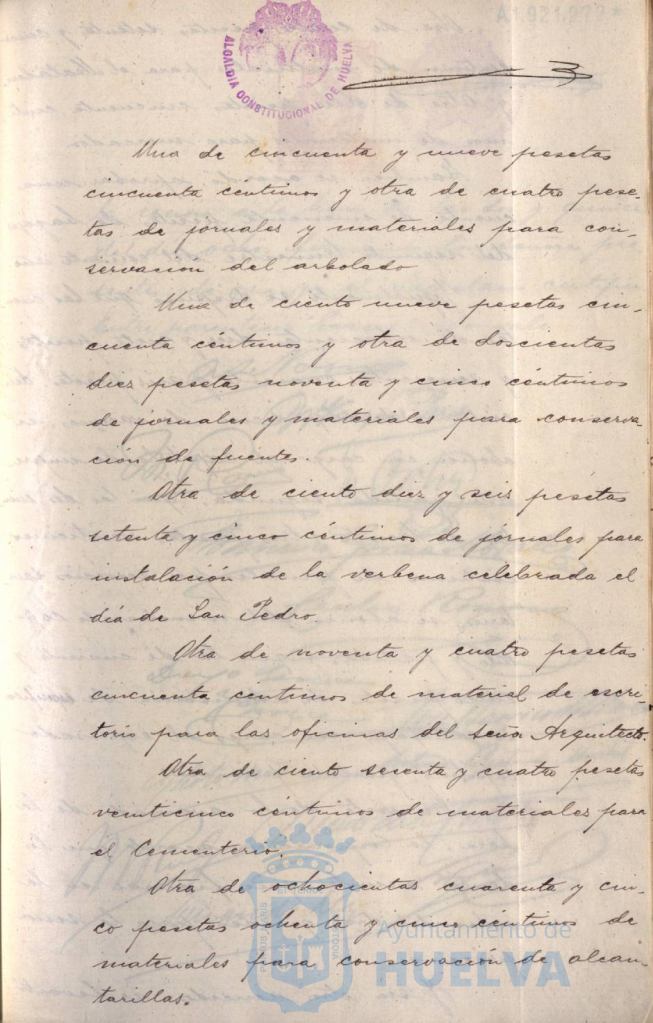 A1.921.979*
ALCALDÍA CONSTITUCIONAL DE HUELVA
Una de cincuenta y nueve pesetas
cincuenta céntimos y otra de cuatro pese-
tas de jornales y materiales para con-
servacion del arbolado
Una de ciento nueve pesetas cin-
cuenta céntimos y otra de doscientas
diez pesetas noventa y cinco céntimos
de jornales y materiales para conserva-
ción de fuentes.
Otra de ciento diez y seis pesetas
setenta y cinco céntimos de jornales para
instalación de la verbena celebrada el
día de San Pedro.
Otra de noventa y cuatro pesetas
cincuenta centimos de material de escri-
torio para las oficinas del señor Arquitecto.
Otra de ciento sesenta y cuatro pesetas
veinticinco céntimos de materiales para
el Cementerio.
Otra de ochocientas cuarenta y cin-
co pesetas ochenta y cinco céntimos de
materiales para conservación de alcan-
tarillas.
Ayuntamiento de
HUELVA